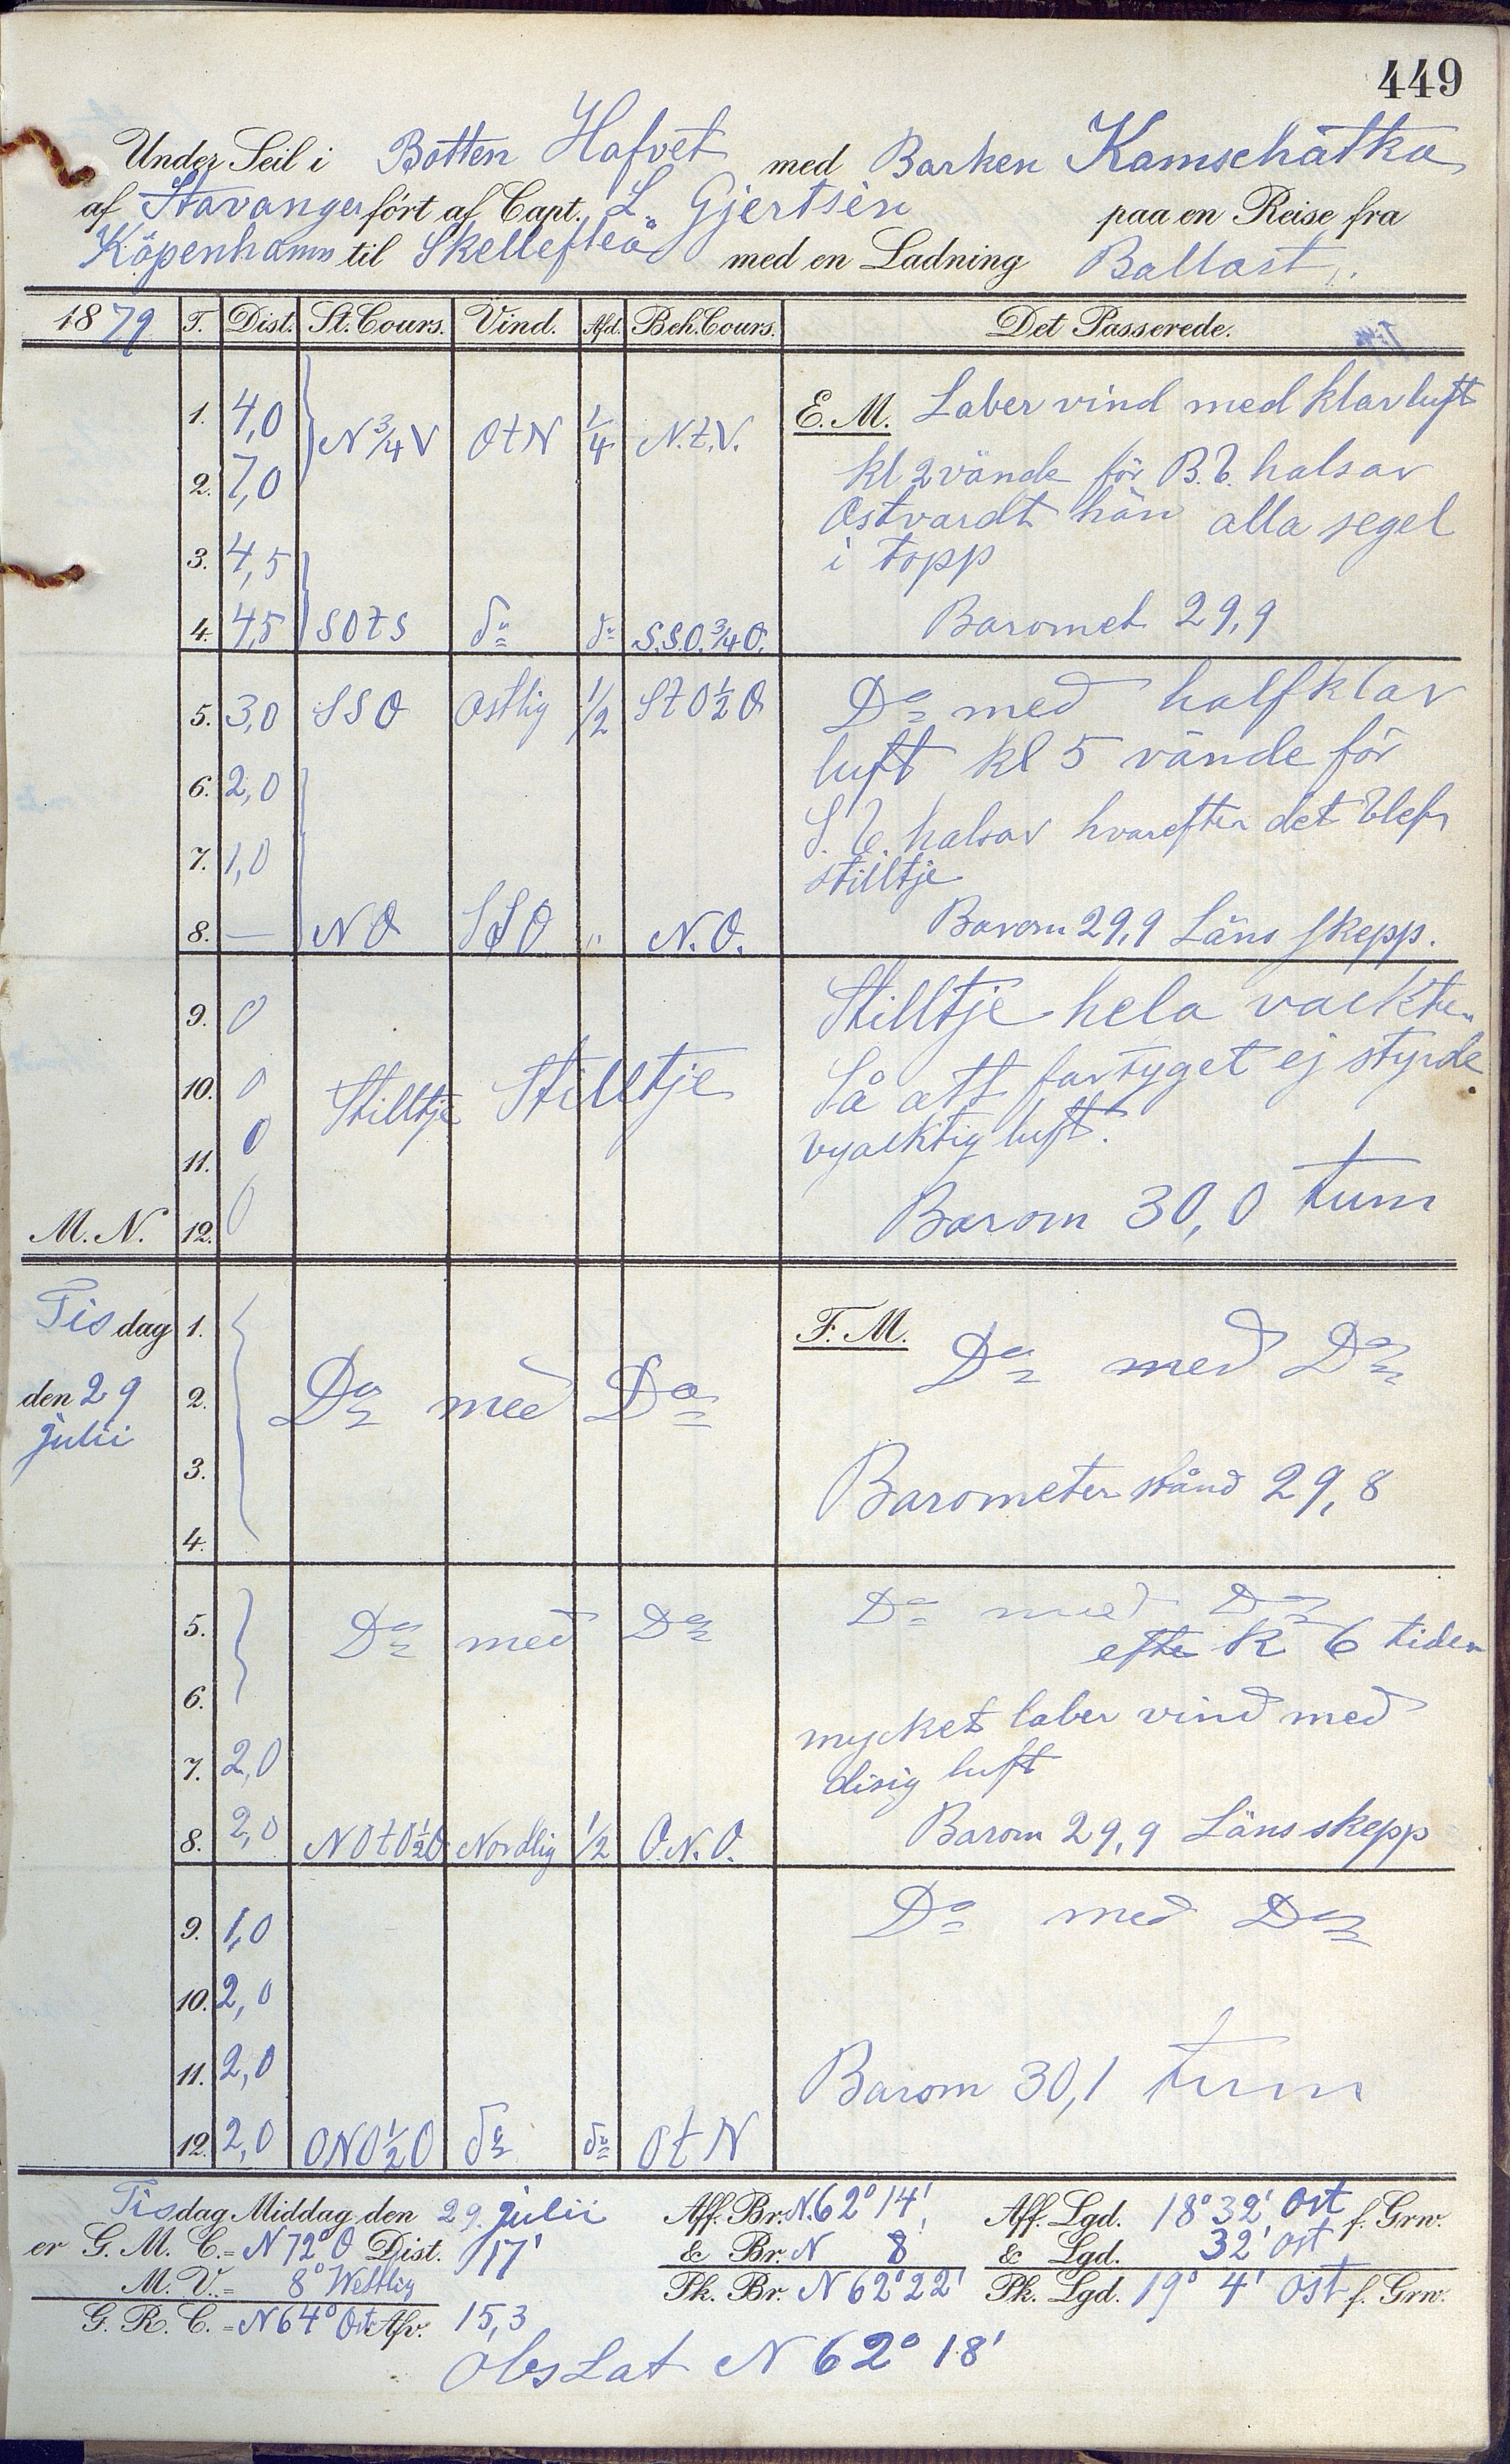 449
Under Seil i Botten Hafvet med Barken Kamschatka
af Stavanger fört af Capt. L. Gjertsen paa en Reise fra
Köpenhamn til Skellefteå med en Ladning Ballast.
1879 T. Dist. St. Cours. Vind. Afd. Beh. Cours. Det Passerede.
1. 4,0 N 3/4 V OtN 1/4 N.t.V. E.M. Laber vind med klar luft
2. 7,0 kl 2 vände för B.b. halsar
Ostvardt hän alla segel
3. 4,5 i topp
4. 4,5 SOtS do do S.S.O. 3/4 O. Baromet 29,9
5. 3,0 SSO Ostlig 1/2 StO 1/2 O Do med halfklar
luft kl 5 vände för
6. 2,0 S.b. halsar hvarefter det blef
7. 1,0 stilltje
8. — NO SSO " N.O. Barom 29,9 Läns skepp.
9. 0 Stilltje hela vackten
10. 0 Stilltje Stilltje Så att fartyget ej styrde
11. 0 luft.
M. N. 12. 0 Barom 30,0 tum
Tisdag 1. F.M. Do med Do
den 29 2. Do med Do
julii
3. Barometer stånd 29,8
4.
5. Do med Do Do med Do
efter k 6 tiden
6. mycket laber vind med
7. 2,0 disig luft
8. 2,0 NOtO 1/2 O Nordlig 1/2 O.N.O. Barom 29,9 Läns skepp
9. 1,0 Do med Do
10. 2,0
11. 2,0 Barom 30,1 tum
12. 2,0 ONO 1/2 O do do OtN
Tisdag Middag den 29. julii Aff. Br. N. 62° 14', Aff. Lgd. 18° 32' Ost f. Grw.
er G. M. C. = N 72° O Dist. 17' & Br. N 8 & Lgd. 32' Ost
M. V. = 8° Westlig Pk. Br. N 62° 22' Pk. Lgd. 19° 4' Ost f. Grw.
G. R. C. = N 64° Ost Afv. 15,3
Obs Lat N 62° 18'